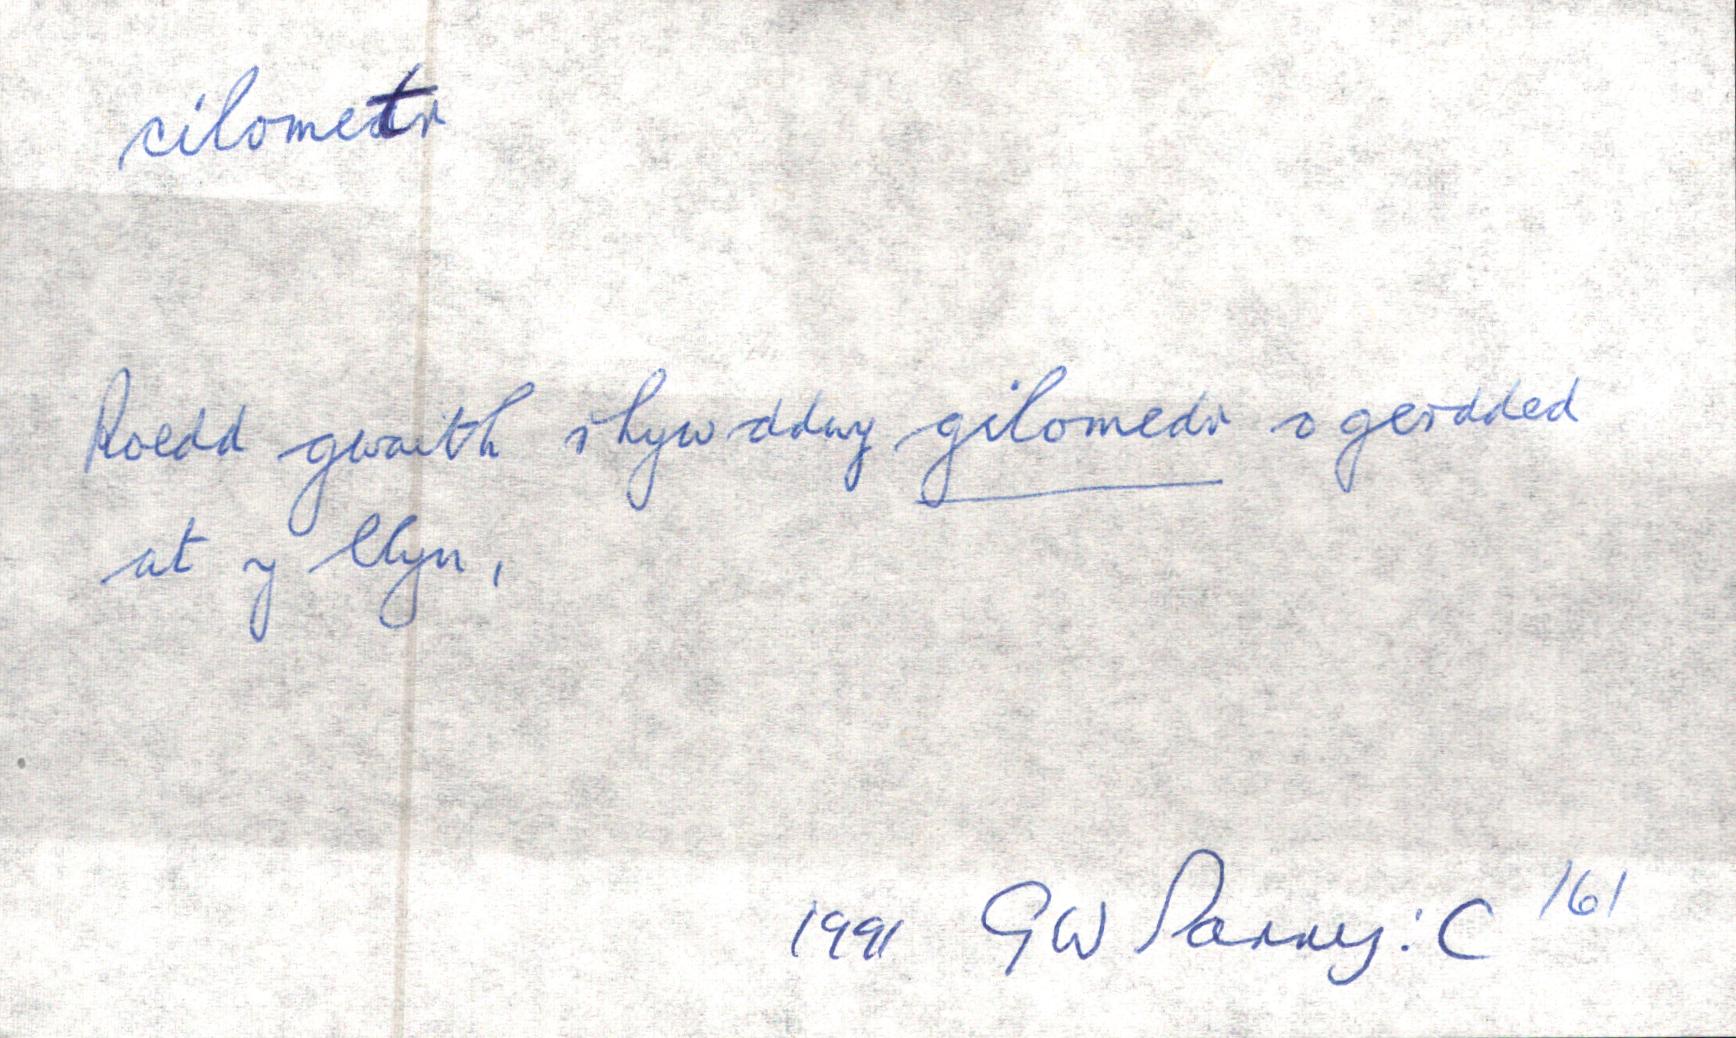 cilometr
Roedd gwaith rhyw ddwy gilomedr o gerdded
at y llyn,
1991 GW Parry: C 161